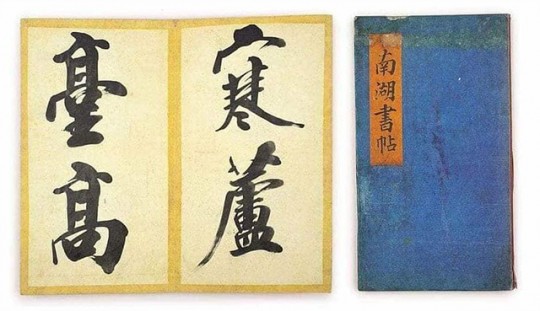 寒蘆
臺高
南湖書帖